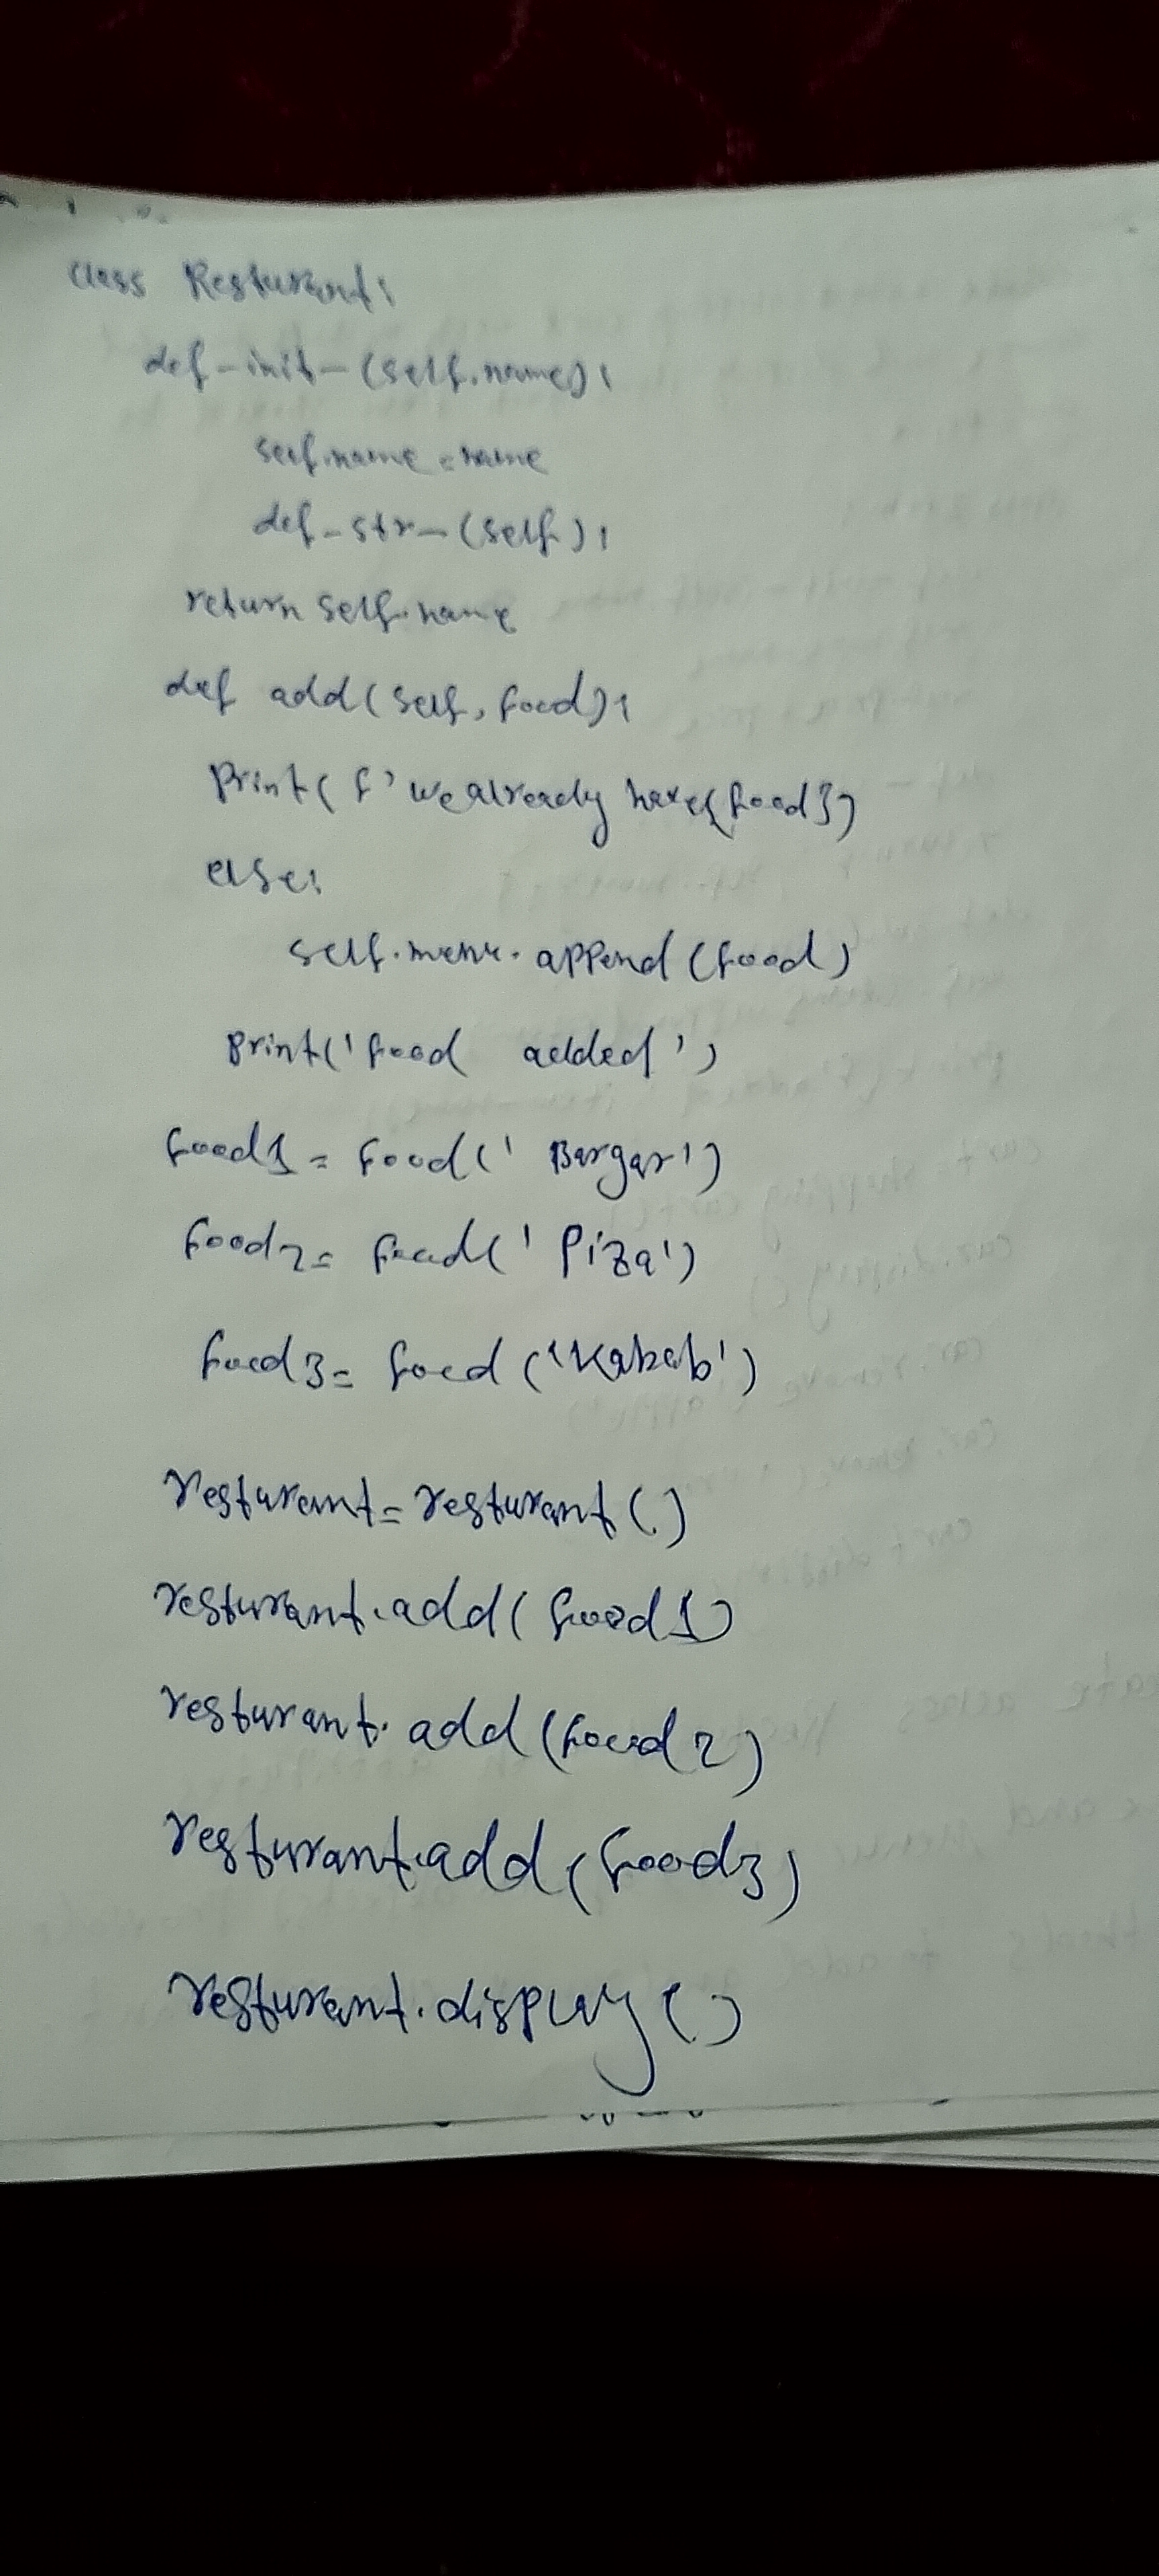 class Resturant:
def _init_ (self.name):
self.name = name
def _str_ (self):
return self.name
def add (self, food):
Print( f' we already have{food})
else:
self.menu.append (food)
Print(' food added ')
food1 = food(' Bargar')
food2 = food(' Piza')
food3 = food ('Kabab')
resturant = resturant ()
resturant.add( food1)
resturant. add (food2)
resturant.add (food3)
resturant.display ()